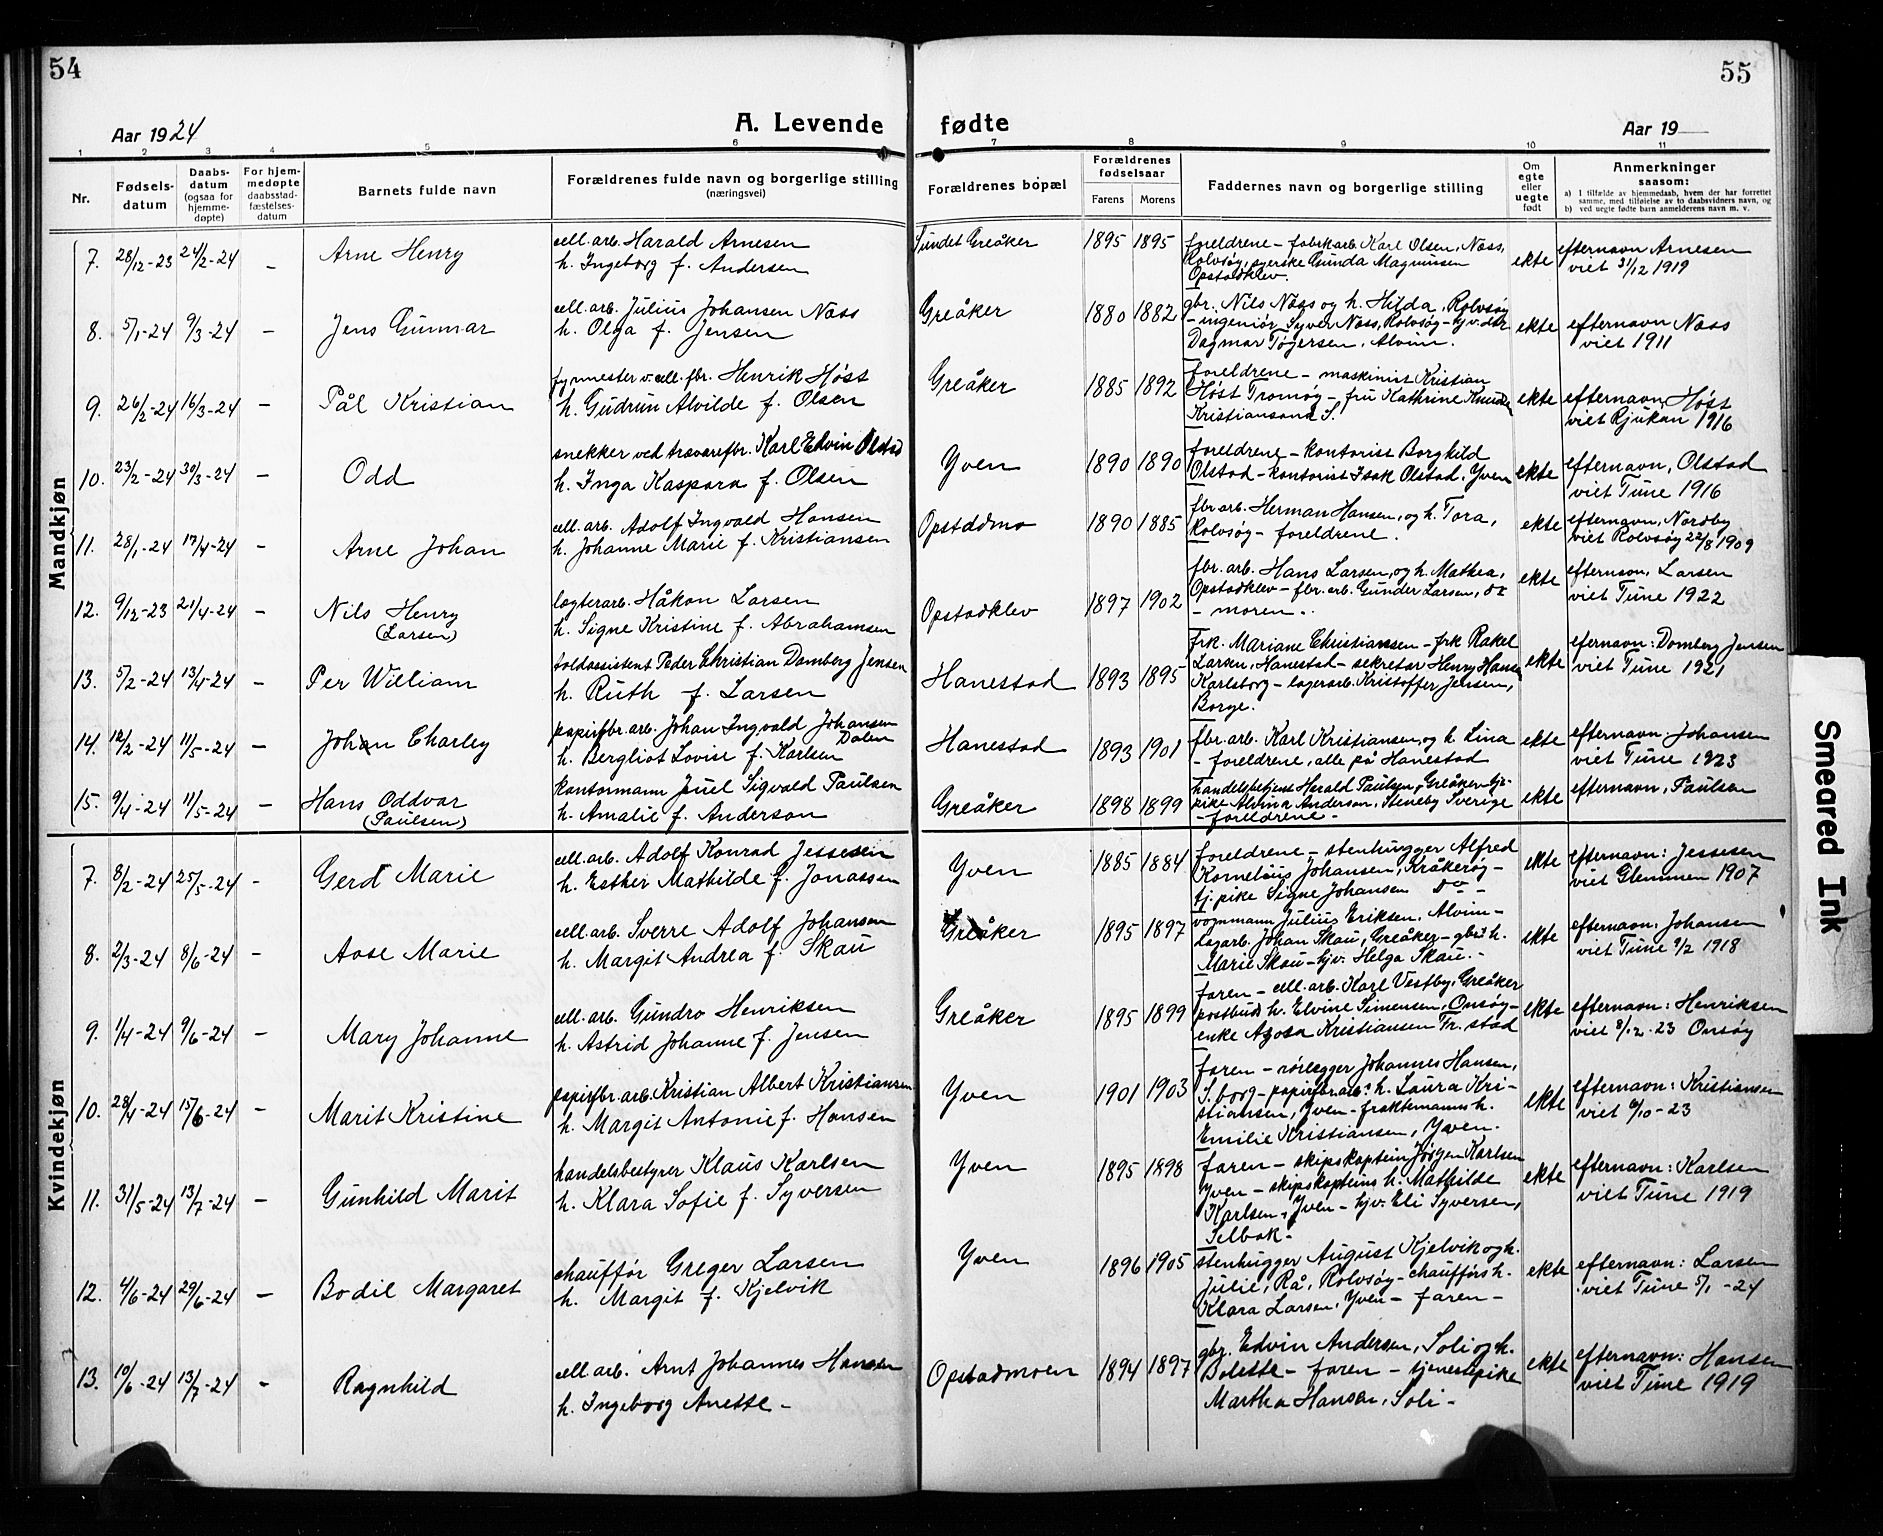 54
55
Aar 1924
A. Levende fødte
Aar 19
1 2 3 4 5 6 7 8 9 10 11
Nr.
Fødsels-
datum
Daabs-
datum
(ogsaa for
hjemme-
døpte)
For hjem-
medøpte
daabsstad-
fæstelses-
datum
Barnets fulde navn
Forældrenes fulde navn og borgerlige stilling
(næringsvei)
Forældrenes bopæl
Forældrenes
fødselsaar
Farens Morens
Faddernes navn og borgerlige stilling
Om
egte
eller
uegte
født
Anmerkninger
saasom:
a) I tilfælde av hjemmedaab, hvem der har forrettet
samme, med tilføielse av to daabsvidners navn, og
b) ved uegte fødte barn anmelderens navn m. v.
Mandkjøn
7. 28/12-23 24/2-24 – Arne Henry
cell. arb. Harald Arnesen
h. Ingeborg f. Andersen
Sundet Greåker 1895 1895
foreldrene – fabrkarb. Karl Olsen, Næss,
Rolvsøy, syerske Gunda Magnusen
Opstadklev.
ekte
efternavn Arnesen
viet 31/12 1919
8. 5/1-24 9/3-24 – Jens Gunnar
cell. arb. Julius Johansen Næss
h. Olga f. Jensen
Greåker 1880 1882
gbr. Nils Næss og h. Hilda, Rolvsøy
– ingeniør Syver Næss, Rolvsøy – hjv. dtr
Dagmar Tøgersen, Alvim.
ekte
efternavn Næss
viet 1911
9. 26/2-24 16/3-24 – Pål Kristian
fyrmester v. cell. fbr. Henrik Høst
h. Gudrun Alvilde f. Olsen
Greåker 1885 1892
foreldrene – maskinist Kristian
Høst Tromøy – fru Kathrine Knudsen
Kristiansand S.
ekte
efternavn, Høst
viet Rjukan 1916
10. 23/2-24 30/3-24 – Odd
snekker ved trævarefbr. Karl Edvin Olstad
h. Inga Kaspara f. Olsen
Yven 1890 1890
foreldrene – kontorist Borghild
Olstad – kontorist Isak Olstad, Yven
ekte
efternavn, Olstad
viet Tune 1916
11. 28/1-24 17/4-24 – Arne Johan
cell. arb. Adolf Ingvald Hansen
h. Johanne Marie f. Kristiansen
Opstadmo 1890 1885
fbr. arb. Herman Hansen, og h. Tora,
Rolvsøy – foreldrene.
ekte
efternavn, Nordby
viet Rolvsøy 22/8 1909
12. 9/12-23 21/4-24 – Nils Henry
(Larsen)
lagterarb. Håkon Larsen
h. Signe Kristine f. Abrahamsen
Opstadklev 1897 1902
fbr. arb. Hans Larsen, og h. Mathea,
Opstadklev – fbr. arb. Gunder Larsen, do
– moren.
ekte
efternavn, Larsen
viet Tune 1922
13. 5/2-24 13/4-24 – Per William
toldassistent Peder Christian Domberg Jensen
h. Ruth f. Larsen
Hanestad 1893 1895
frk. Mariane Christianssen – frk Rakel
Larsen, Hanestad – sekretær Henry Hansen
Karlsborg – lagerarb. Kristoffer Jensen,
Borge.
ekte
efernavn: Domberg Jensen
viet Tune 1921
14. 12/2-24 11/5-24 – Johan Charley
papirfbr. arb. Johan Ingvald Johansen
Dalen
h. Bergliot Lovise f. Karlsen
Hanestad 1893 1901
fbr. arb. Karl Kristiansen, og h. Lina
– foreldrene, alle på Hanestad
ekte
efternavn, Johansen
viet Tune 1923
15. 9/4-24 11/5-24 – Hans Oddvar
(Paulsen)
kontormann Juel Sigvald Paulsen
h. Amalie f. Anderson
Greåker 1898 1899
handelsbetjent Harald Paulsen, Greåker tje-
pike Alvina Anderson, Steneby Sverige
– foreldrene –
ekte
efternavn, Paulsen
Kvindekjøn
7. 8/2-24 25/5-24 – Gerd Marie
cell. arb. Adolf Konrad Jessesen
h. Esther Mathilde f. Jonassen
Yven 1885 1884
foreldrene – stenhugger Alfred
Kornelius Johansen, Kråkerøy –
tj. pike Signe Johansen do –
ekte
efternavn: Jessesen
viet Glemmen 1907
8. 2/3-24 8/6-24 – Aase Marie
cell. arb. Sverre Adolf Johansen
h. Margit Andrea f. Skau
Greåker 1895 1897
vognmann Julius Eriksen, Alvim –
lagarb. Johan Skau, Greåker – gbr. h.
Marie Skau – hjv. Helga Skau. –
ekte
efternavn: Johansen
viet Tune 9/2 1918
9. 1/4-24 9/6-24 – Mary Johanne
cell. arb. Gundro Henriksen
h. Astrid Johanne f. Jensen
Greåker 1895 1899
faren – cell. arb. Karl Vestby, Greåker
postbud h. Elvine Simensen, Onsøy –
enke Agosa Kristiansen Fr. stad
ekte
efternavn: Henriksen
viet 8/12-23 Onsøy
10. 28/4-24 15/6-24 – Marit Kristine
papirfbr. arb. Kristian Albert Kristiansen
h. Margit Antonie f. Hansen
Yven 1901 1903
faren – rørlegger Johannes Hansen,
S. borg – papirfbrarb. h. Laura Kri-
stiansen, Yven – fraktemanns h.
Emilie Kristiansen, Yven.
ekte
efternavn: Kristiansen
viet 6/10-23
11. 31/5-24 13/7-24 – Gunhild Marit
handelsbestyrer Klaus Karlsen
h. Klara Sofie f. Syversen
Yven 1895 1898
faren – skipskaptein Jörgen Karlsen
Yven – skipskapteins h. Mathilde
Karlsen, Yven – hjv. Eli Syversen,
Selbak –
ekte
efternavn: Karlsen
viet Tune 1919
12. 4/6-24 29/6-24 – Bodil Margaret
chauffør Greger Larsen
h. Margit f. Kjelvik
Yven 1896 1905
stenhugger August Kjelvik og h.
Julie, Rå, Rolvsøy – chaufførs h.
Klara Larsen, Yven – faren –
ekte
efternavn: Larsen
viet Tune 5/1-24
13. 10/6-24 13/7-24 – Ragnhild
cell. arb. Arnt Johannes Hansen
h. Ingeborg Anette –
Opstadmoen 1894 1897
gbr. Edvin Andersen, Soli og h.
Bolette – faren – tjenestepike
Martha Hansen, Soli –
ekte
efternavn: Hansen
viet Tune 1919
Smeared Ink